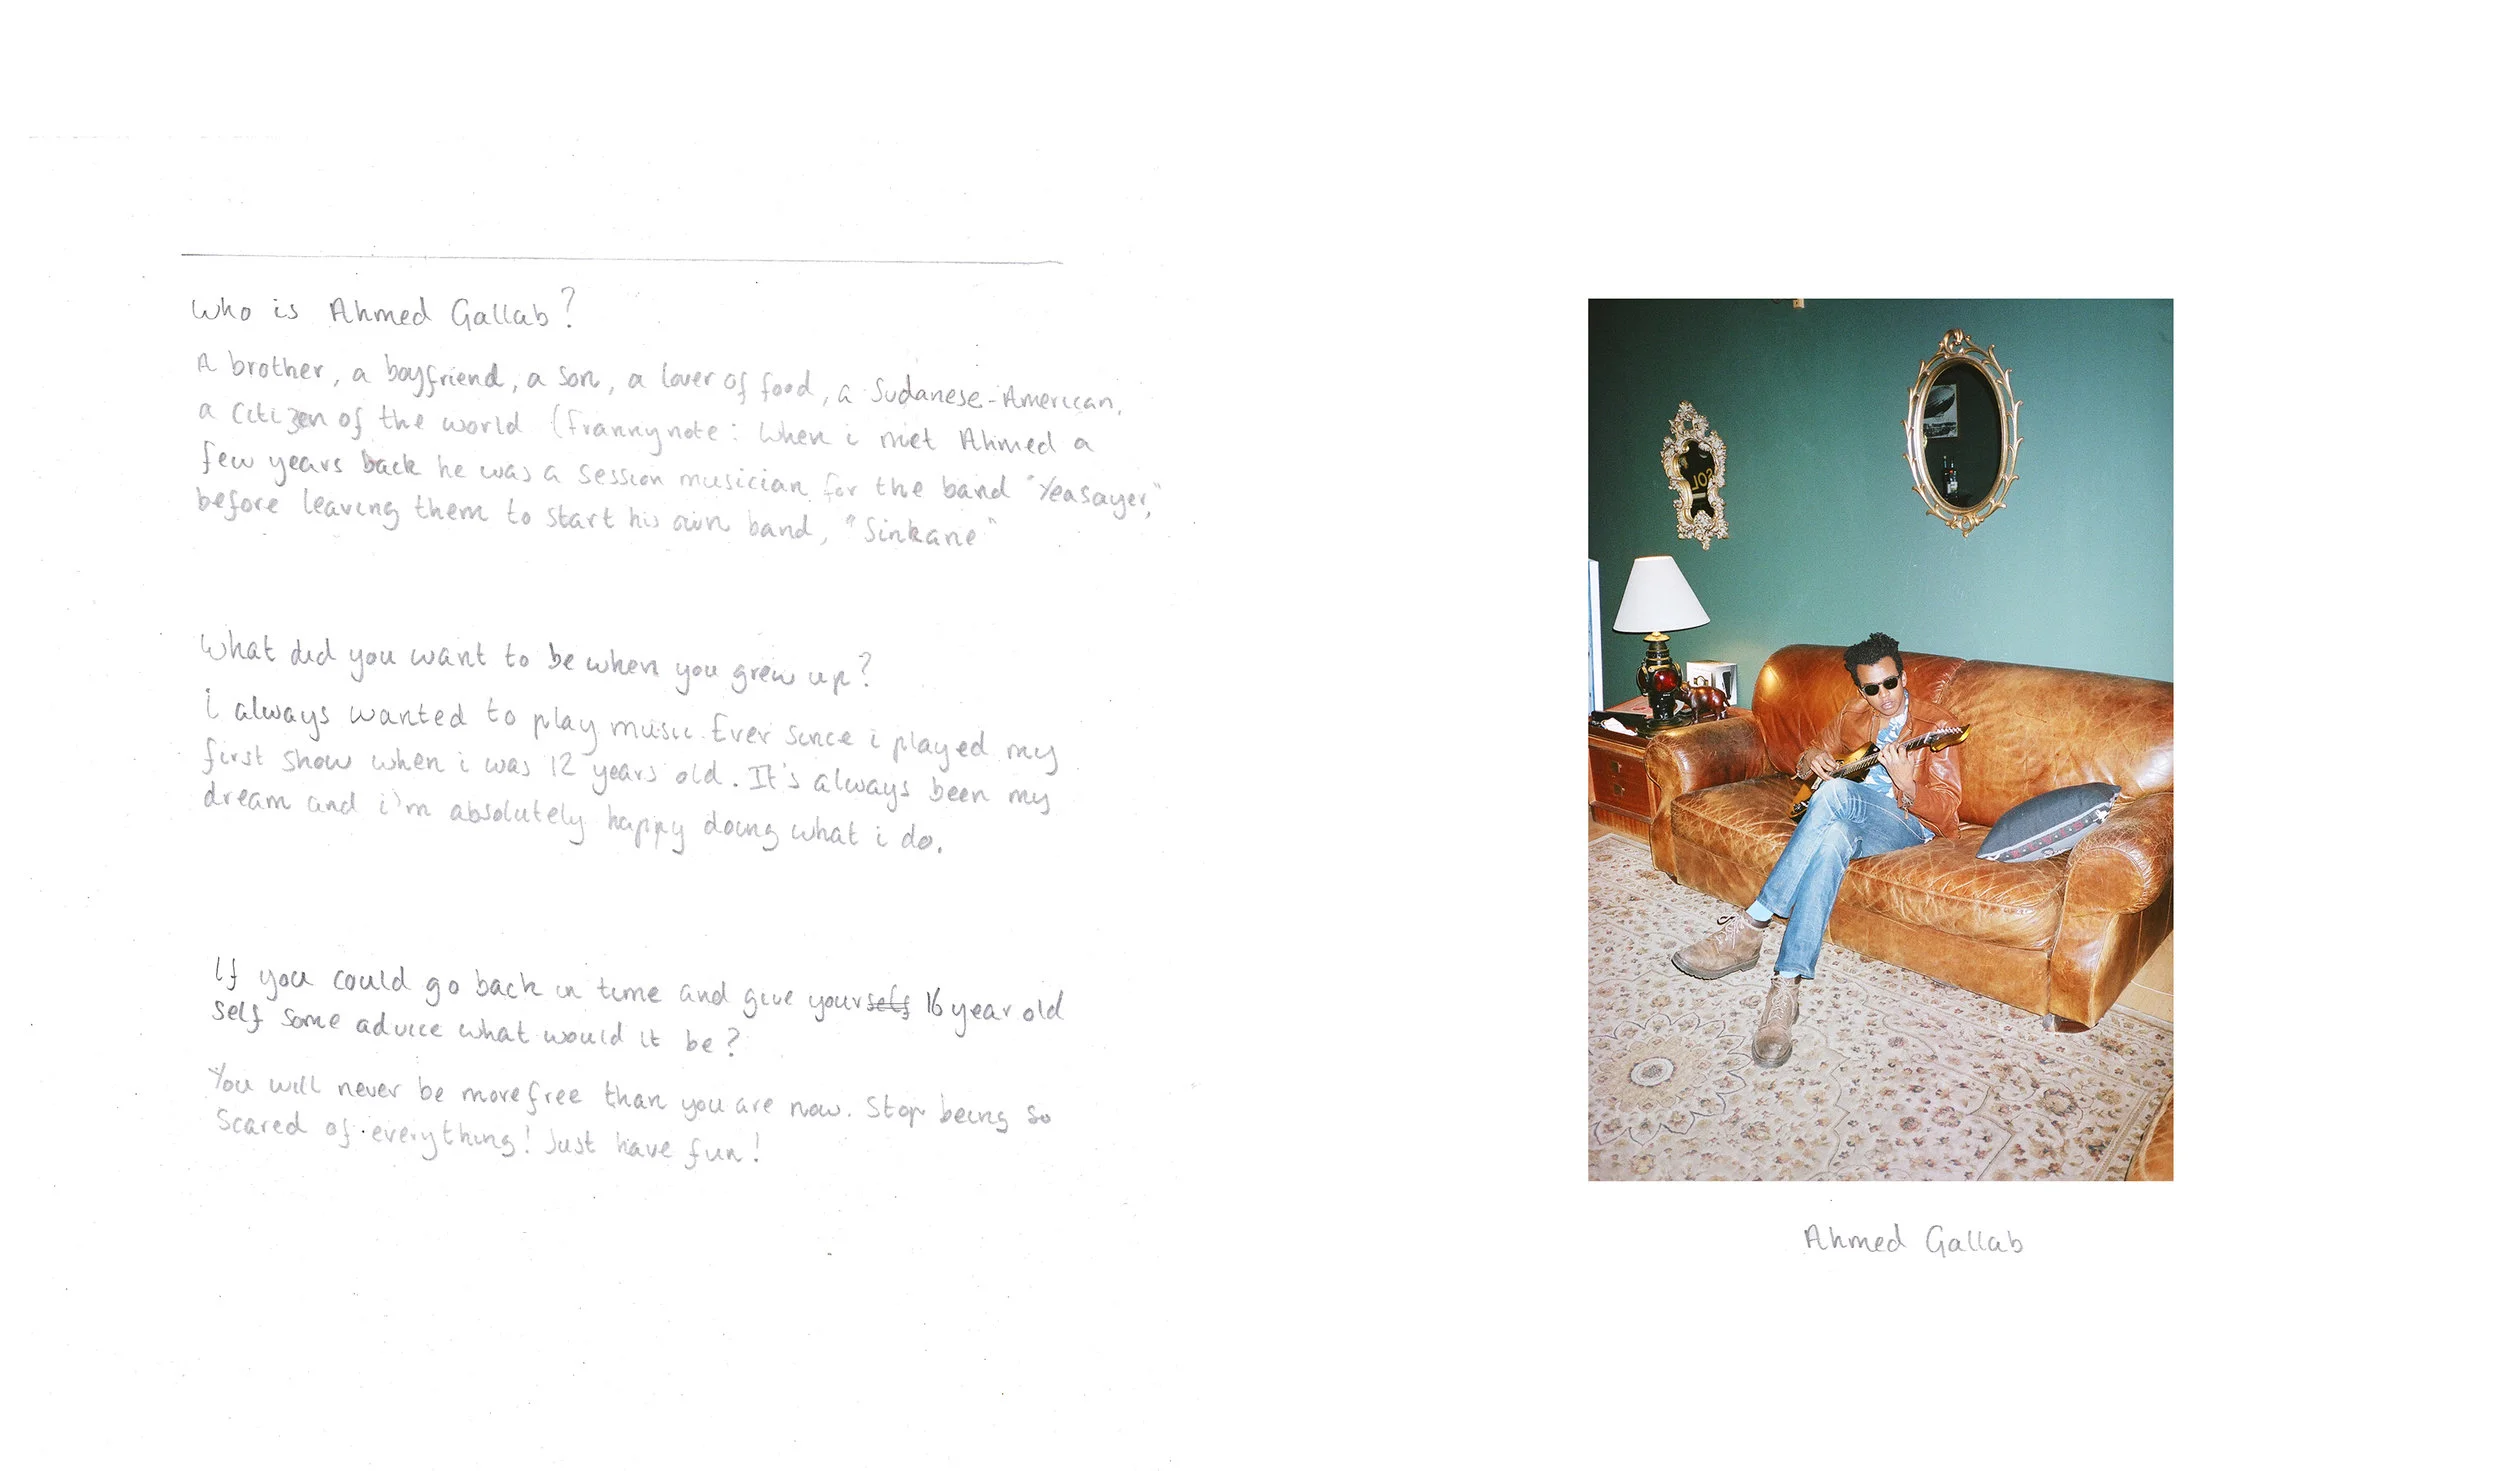 Who is Ahmed Gallab?
A brother, a boyfriend, a son, a lover of food, a Sudanese-American,
a citizen of the world (frannynote: When i met Ahmed a
few years back he was a session musician for the band "Yeasayer,"
before leaving them to start his own band, "Sinkane"
What did you want to be when you grew up?
i always wanted to play music. Ever since i played my
first show when i was 12 years old. It's always been my
dream and i'm absolutely happy doing what i do.
If you could go back in time and give yourself 16 year old
self some advice what would it be?
You will never be more free than you are now. Stop being so
scared of everything! Just have fun!
Ahmed Gallab